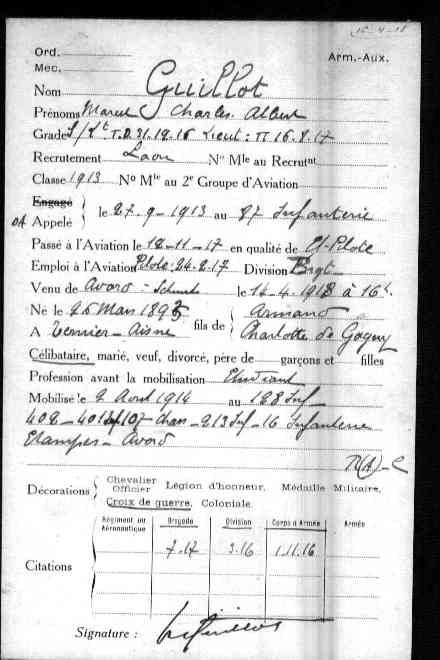 15-4-18
Ord. Arm.-Aux.
Mec.
Nom Guillot
Prénoms Marcel Charles Albert
Grade S/Lt T.D. 31.12.16 Lieut: TT 16.8.17
Recrutement Laon No Mle au Recrutnt
Classe 1913 No Mle au 2e Groupe d'Aviation
Engagé
DA Appelé le 27-9-1913 au 87 Infanterie
Passé à l'Aviation le 12-11-17 en qualité de El-Pilote
Emploi à l'Aviation Pilote 24.2.17 Division Brgt
Venu de Avord - le 14-4-1918 à 16h
Né le 26 Mars 1893 fils de Armand
A Ternier - Aisne Charlotte de Gogny
Célibataire, marié, veuf, divorcé, père de garçons et filles
Profession avant la mobilisation Etudiant
Mobilisé le 2 Aout 1914 au 128 Inf
402 - 401 Inf 107 chas - 213 Inf - 16 Infanterie
Etampes - Avord
Décorations Chevalier Légion d'honneur, Médaille Militaire,
Officier
Croix de guerre, Coloniale
Régiment ou Aéronautique Brigade Division Corps d'Armée Armée
Citations 7-17 3-16 1.11.16
Signature : Guillot